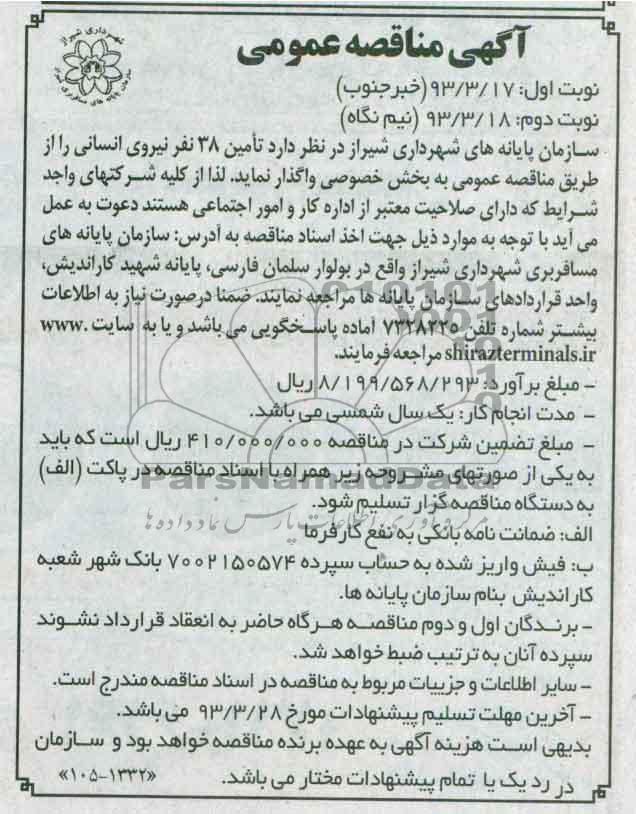 شهرداری شیراز
سازمان پایانه های مسافربری شیراز
آگهی مناقصه عمومی
نوبت اول: ۹۳/۳/۱۷ (خبرجنوب)
نوبت دوم: ۹۳/۳/۱۸ (نیم نگاه)
سازمان پایانه های شهرداری شیراز در نظر دارد تأمین ۳۸ نفر نیروی انسانی را از
طریق مناقصه عمومی به بخش خصوصی واگذار نماید. لذا از کلیه شرکتهای واجد
شرایط که دارای صلاحیت معتبر از اداره کار و امور اجتماعی هستند دعوت به عمل
می آید با توجه به موارد ذیل جهت اخذ اسناد مناقصه به آدرس: سازمان پایانه های
مسافربری شهرداری شیراز واقع در بولوار سلمان فارسی، پایانه شهید کاراندیش،
واحد قراردادهای سازمان پایانه ها مراجعه نمایند. ضمنا درصورت نیاز به اطلاعات
بیشتر شماره تلفن ۷۳۲۸۲۲۵ آماده پاسخگویی می باشد و یا به سایت www.
shirazterminals.ir مراجعه فرمایند.
– مبلغ برآورد: ۸/۱۹۹/۵۶۸/۲۹۳ ریال
– مدت انجام کار: یک سال شمسی می باشد.
– مبلغ تضمین شرکت در مناقصه ۴۱۰/۰۰۰/۰۰۰ ریال است که باید
به یکی از صورتهای مشروحه زیر همراه با اسناد مناقصه در پاکت (الف)
ParsNamadData
به دستگاه مناقصه گزار تسلیم شود.
مرکز فرآوری اطلاعات پارس نماد داده ها
الف: ضمانت نامه بانکی به نفع کارفرما
ب: فیش واریز شده به حساب سپرده ۷۰۰۲۱۵۰۵۷۴ بانک شهر شعبه
کاراندیش بنام سازمان پایانه ها.
– برندگان اول و دوم مناقصه هرگاه حاضر به انعقاد قرارداد نشوند
سپرده آنان به ترتیب ضبط خواهد شد.
– سایر اطلاعات و جزییات مربوط به مناقصه در اسناد مناقصه مندرج است.
– آخرین مهلت تسلیم پیشنهادات مورخ ۹۳/۳/۲۸ می باشد.
بدیهی است هزینه آگهی به عهده برنده مناقصه خواهد بود و سازمان
در رد یک یا تمام پیشنهادات مختار می باشد.
«۱۰۵-۱۳۳۲»